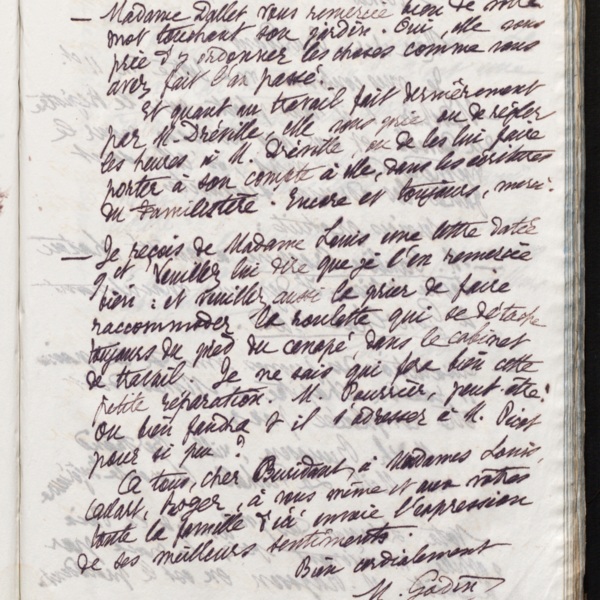 — Madame Dallet vous remercie bien de votre
mot touchant son jardin. Oui, elle vous
prie d'y ordonner les choses comme vous
avez fait l'an passé.
Et quant au travail fait dernièrement
par M. Dréville, elle vous prie ou de régler
les heures à M. Dréville ou de les lui faire
porter à son compte à elle, dans les écritures
du Familistère. Encore et toujours, merci.
— Je reçois de Madame Louis une lettre datée
9 et, veuillez lui dire que je l'en remercie
bien ; et veuillez aussi la prier de faire
raccommoder la roulette qui se détache
toujours du pied du canapé, dans le cabinet
de travail. Je ne sais qui fera bien cette
petite réparation. M. Pourrier, peut-être?
Ou bien faudra-t-il s'adresser à M. Pivot
pour si peu ?
À tous, cher Buridant, à Madames Louis,
Allart, Roger, à vous même et aux vôtres
toute la famille d'ici envoie l'expression
de ses meilleurs sentiments.
Bien cordialement
M. Godin